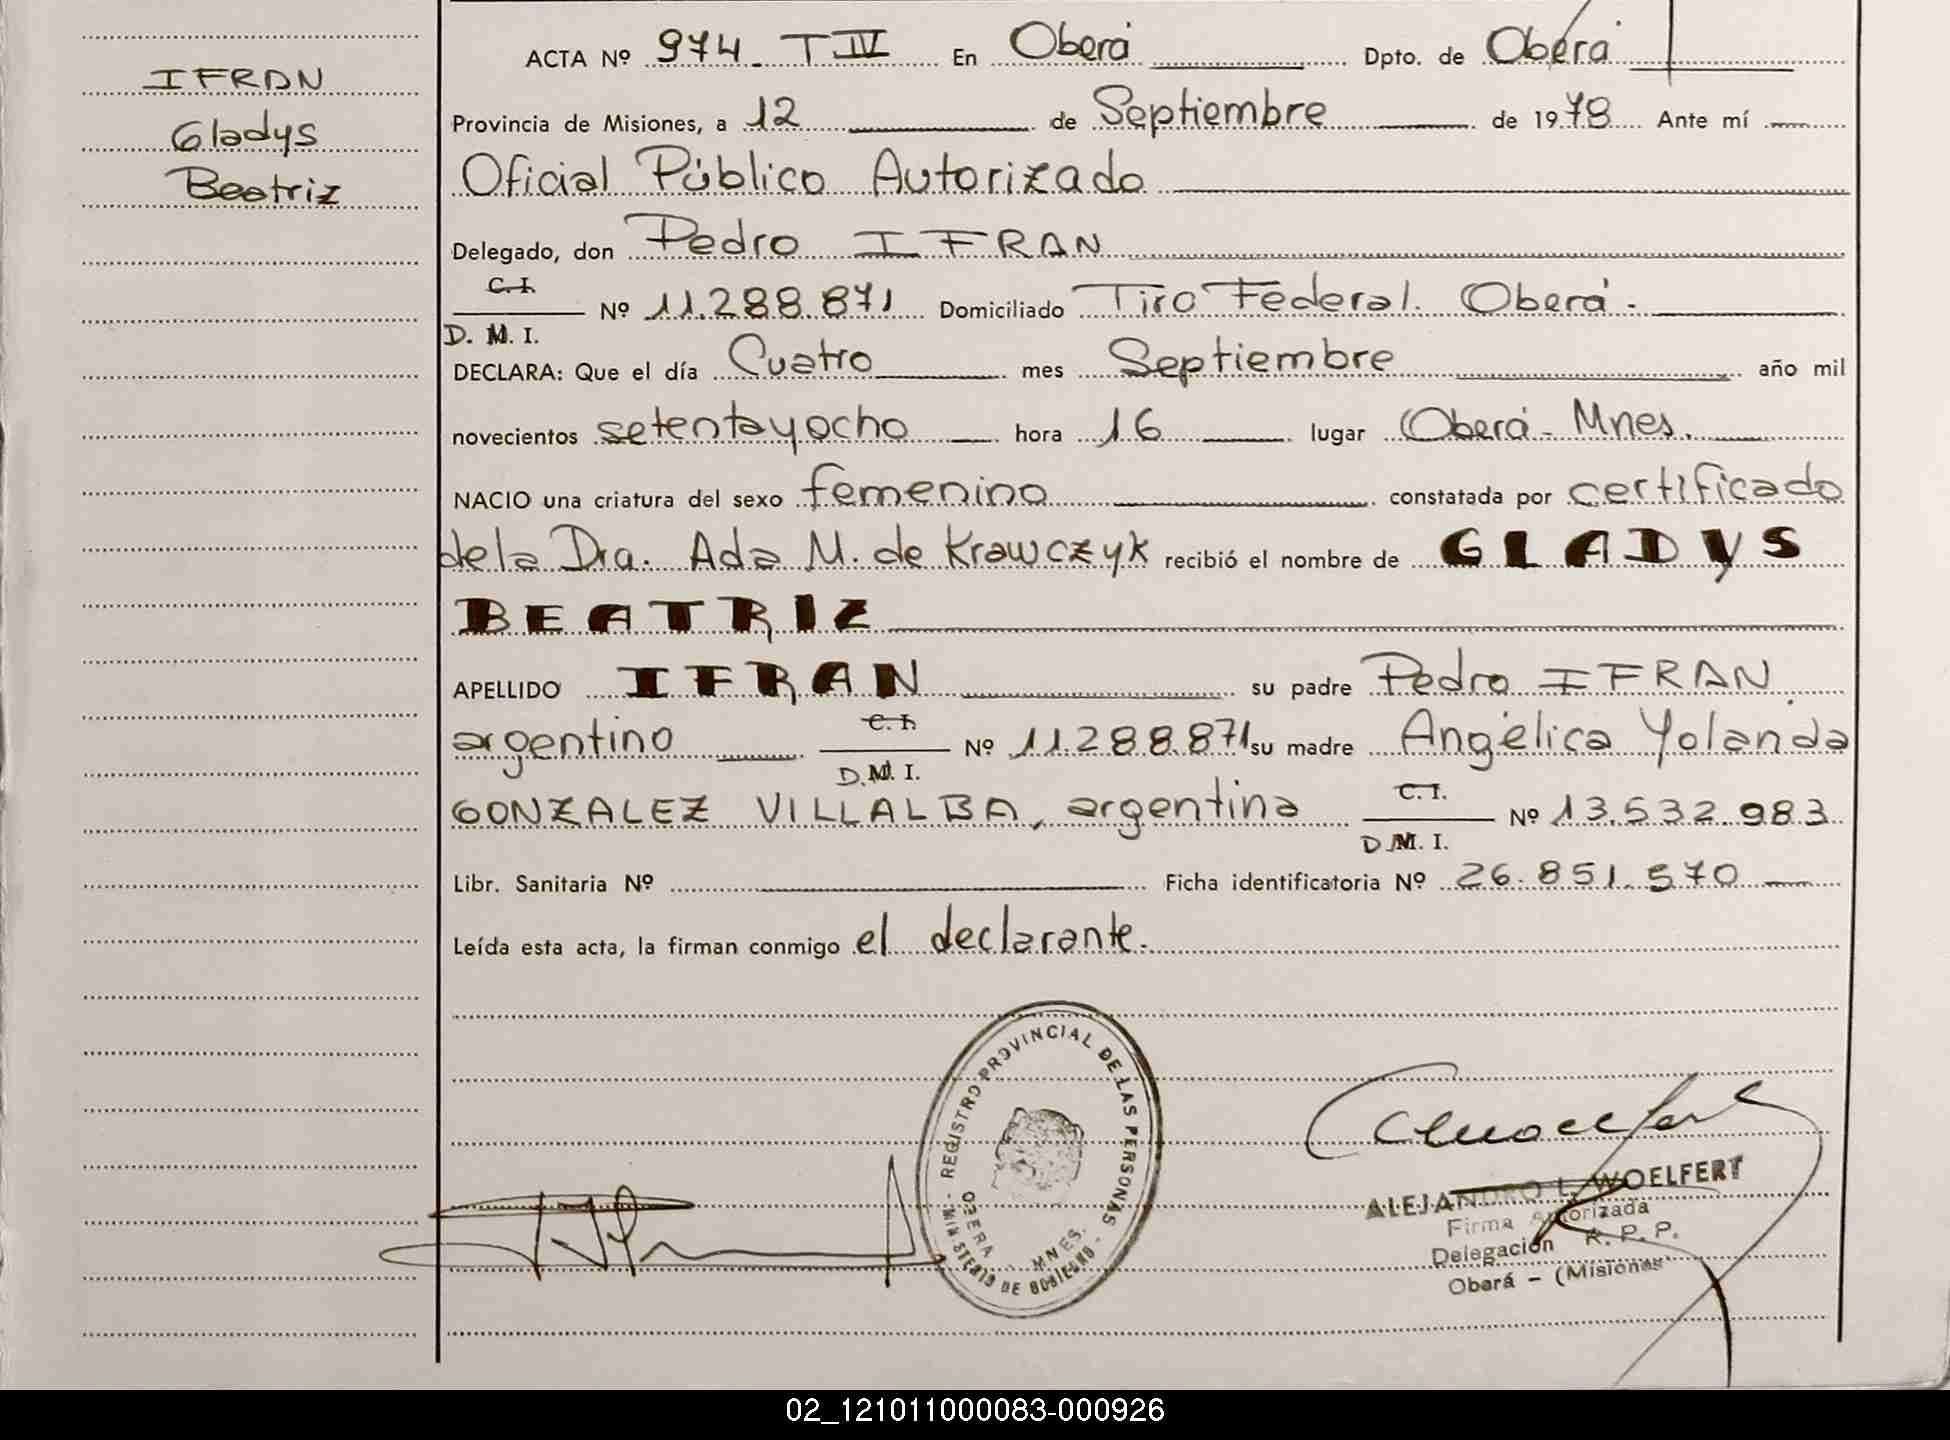 IFRAN
Gladys
Beatriz
ACTA Nº 974 - T IV En Oberá Dpto. de Oberá
Provincia de Misiones, a 12 de Septiembre de 1978 Ante mí
Oficial Público Autorizado
Delegado, don Pedro IFRAN
C. I.
Nº 11.288.871 Domiciliado Tiro Federal. Oberá.
D. M. I.
DECLARA: Que el día Cuatro mes Septiembre año mil
novecientos setentayocho hora 16 lugar Oberá - Mnes.
NACIO una criatura del sexo femenino constatada por certificado
de la Dra. Ada M. de Krawczyk recibió el nombre de GLADYS
BEATRIZ
APELLIDO IFRAN su padre Pedro IFRAN
argentino C. I. Nº 11.288.871 su madre Angélica Yolanda
D. M. I.
GONZALEZ VILLALBA, argentina C. I. Nº 13.532.983
D. M. I.
Libr. Sanitaria Nº Ficha identificatoria Nº 26.851.570
Leída esta acta, la firman conmigo el declarante.
REGISTRO PROVINCIAL DE LAS PERSONAS
- MINISTERIO DE GOBIERNO -
OBERA - MNES.
ALEJANDRO L. WOELFERT
Firma Autorizada
Delegación R. P. P.
Oberá - (Misiones
02_121011000083-000926